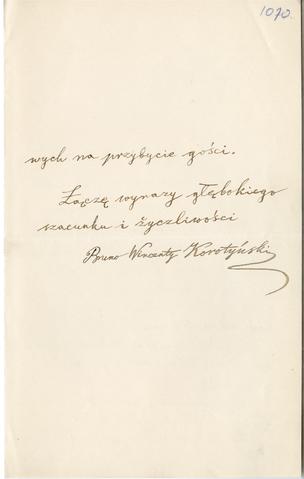 1070.
wych na przybycie gości.
Łączę wyrazy głębokiego
szacunku i życzliwości
Bruno Wincenty Korotyński